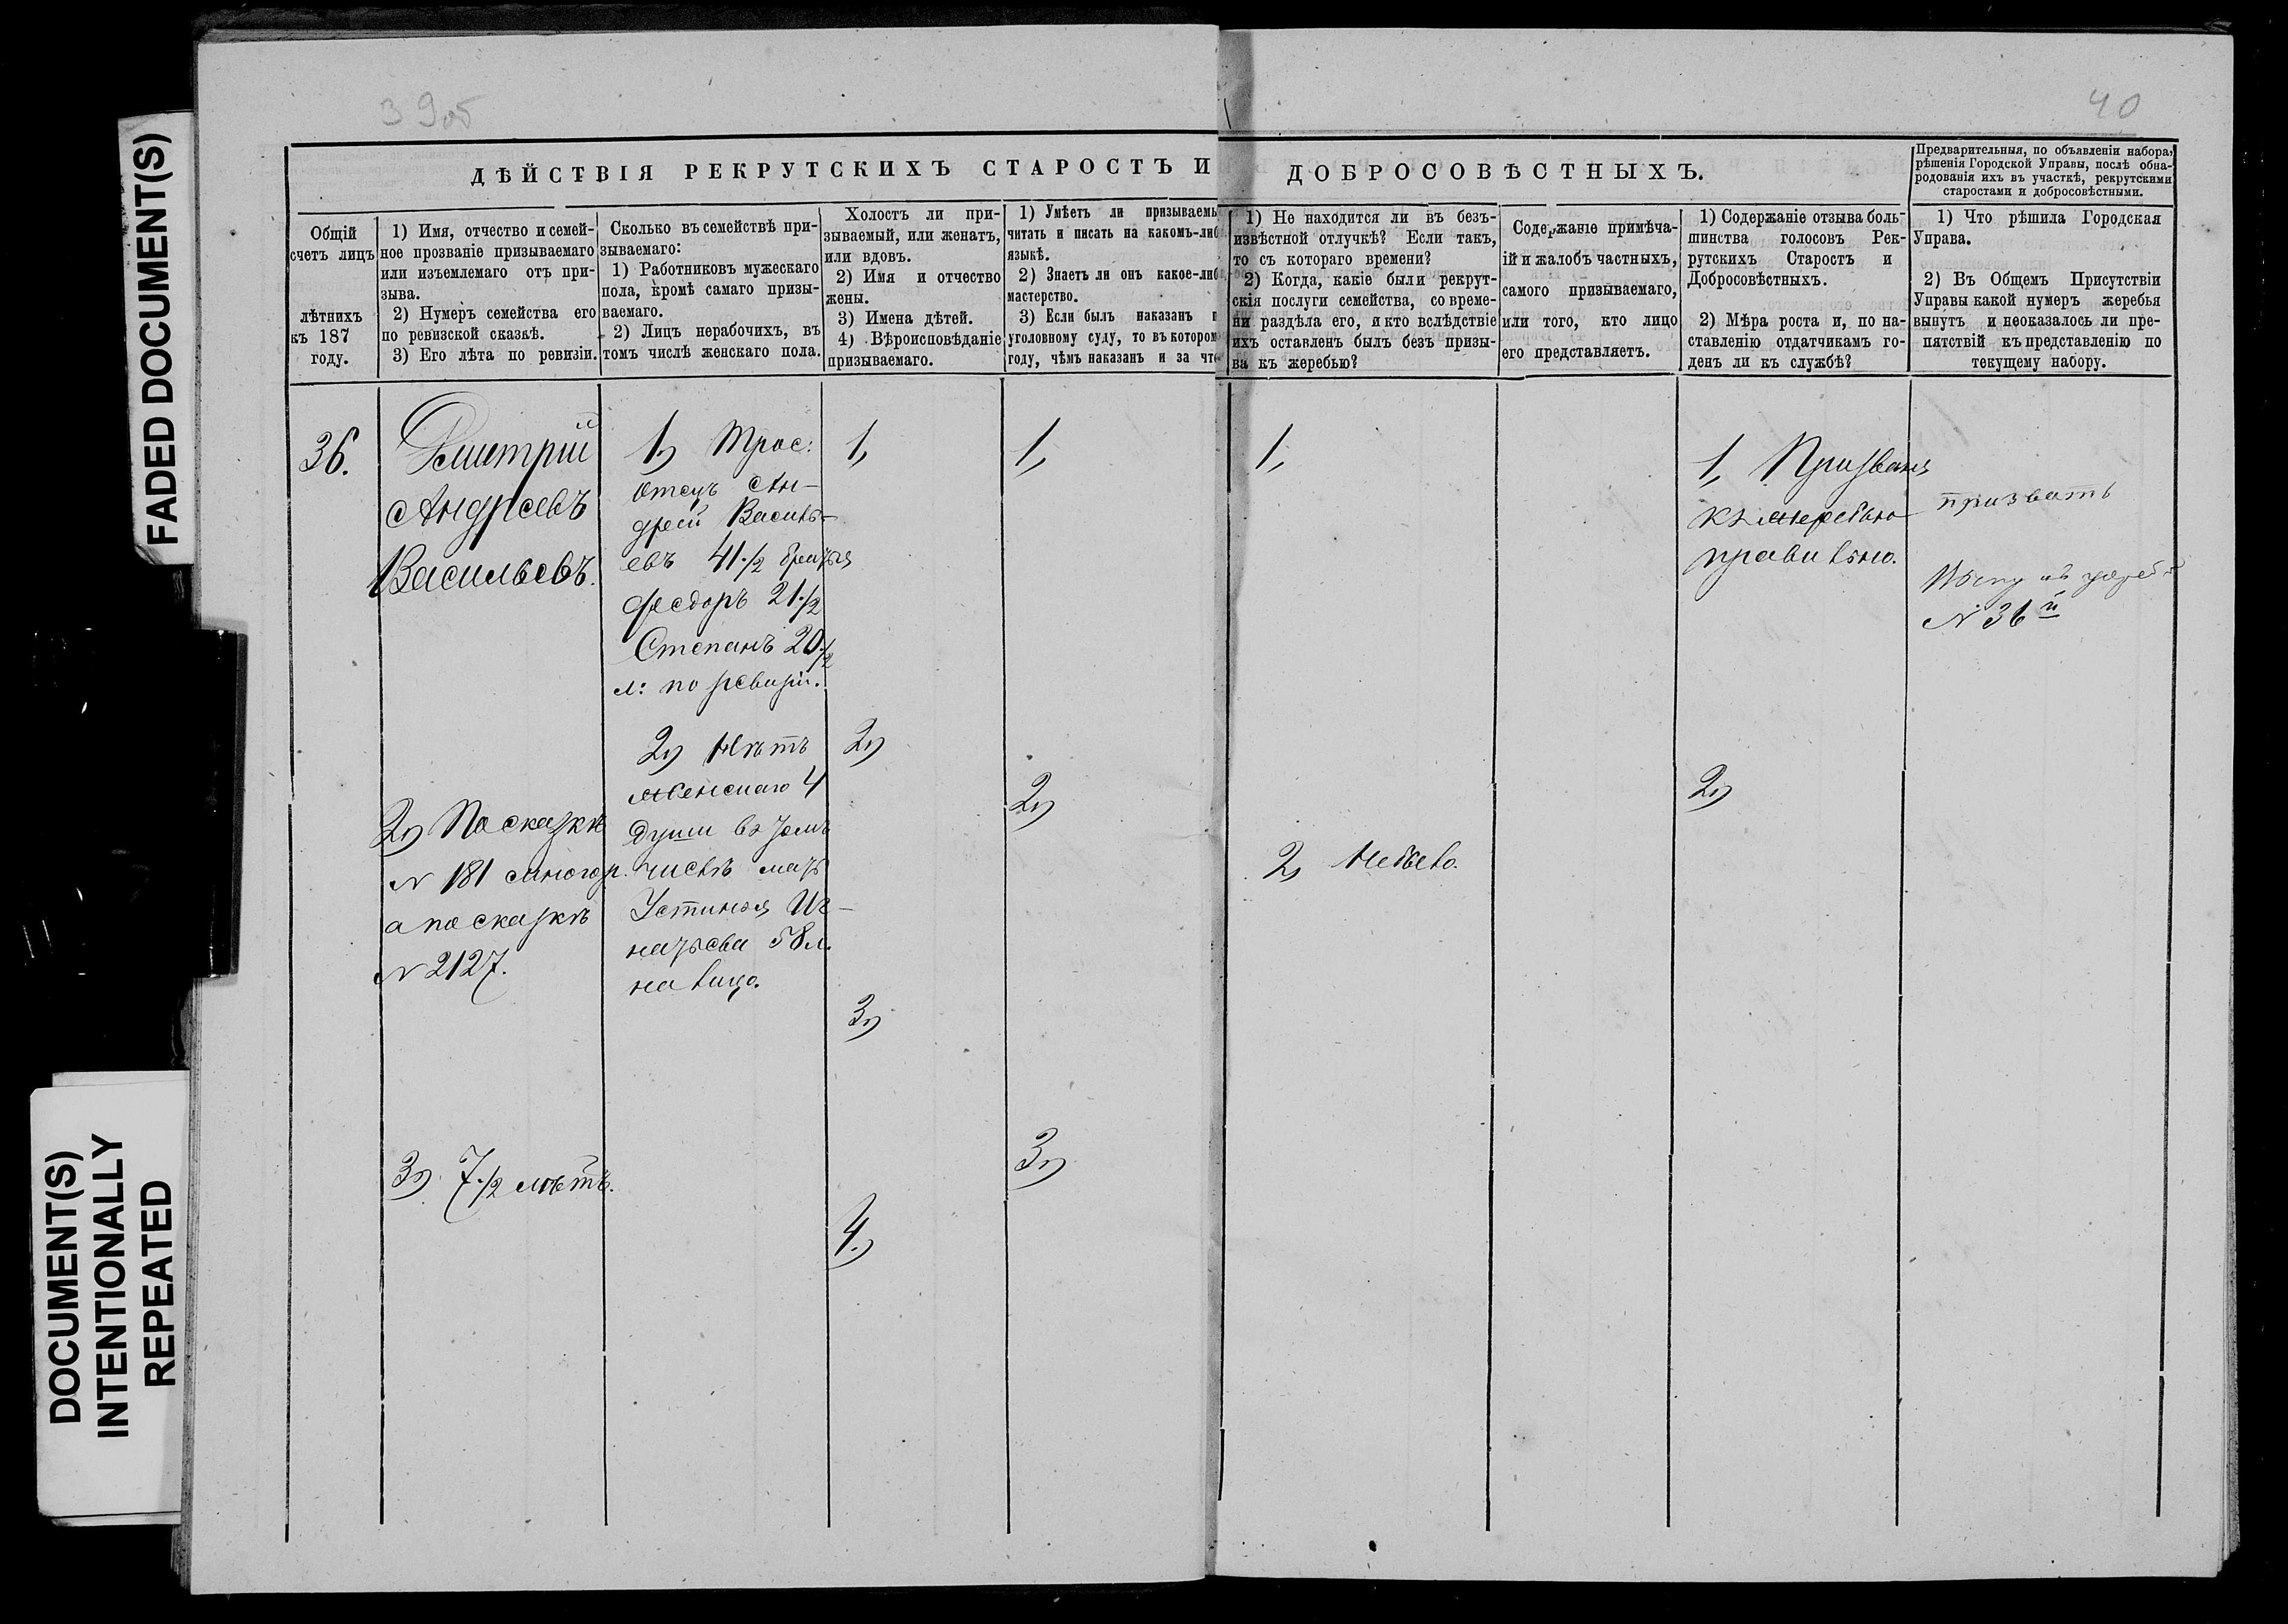 39об
40
FADED DOCUMENT(S)
DOCUMENT(S)
INTENTIONALLY
REPEATED
ДѢЙСТВІЯ РЕКРУТСКИХЪ СТАРОСТЪ И ДОБРОСОВѢСТНЫХЪ.
Предварительныя, по объявленіи набора,
рѣшенія Городской Управы, послѣ обна-
родованія ихъ въ участкѣ, рекрутскими
старостами и добросовѣстными.
Общій
счетъ лицъ
лѣтнихъ
къ 187
году.
1) Имя, отчество и семей-
ное прозваніе призываемаго
или изъемлемаго отъ при-
зыва.
2) Нумеръ семейства его
по ревизской сказкѣ.
3) Его лѣта по ревизіи.
Сколько въ семействѣ при-
зываемаго:
1) Работниковъ мужескаго
пола, кромѣ самаго призы-
ваемаго.
2) Лицъ нерабочихъ, въ
томъ числѣ женскаго пола.
Холостъ ли при-
зываемый, или женатъ,
или вдовъ.
2) Имя и отчество
жены.
3) Имена дѣтей.
4) Вѣроисповѣданіе
призываемаго.
1) Умѣетъ ли призываемы
читать и писать на какомъ-либ
языкѣ.
2) Знаетъ ли онъ какое-либ
мастерство.
3) Если былъ наказанъ п
уголовному суду, то въ котором
году, чѣмъ наказанъ и за что
1) Не находится ли въ безъ-
извѣстной отлучкѣ? Если такъ,
то съ котораго времени?
2) Когда, какіе были рекрут-
скія послуги семейства, со време-
ни раздѣла его, и кто вслѣдствіе
ихъ оставленъ былъ безъ призы-
ва къ жеребью?
Содержаніе примѣча-
ій и жалобъ частныхъ,
самого призываемаго,
или того, кто лицо
его представляетъ.
1) Содержаніе отзыва боль-
шинства голосовъ Рек-
рутскихъ Старостъ и
Добросовѣстныхъ.
2) Мѣра роста и, по на-
ставленію отдатчикамъ го-
денъ ли къ службѣ?
1) Что рѣшила Городская
Управа.
2) Въ Общемъ Присутствіи
Управы какой нумеръ жеребья
вынутъ и неоказалось ли пре-
пятствій къ представленію по
текущему набору.
36.
Дмитрій
Андреевъ
Васильевъ.
2) По сказкѣ
N 181 многор.
а по сказкѣ
N 2127.
3) 7 1/2 лѣтъ.
1) Трое:
отецъ Ан-
дрей Василь-
евъ 41 1/2 братья
Федоръ 21 1/2
Степанъ 20 1/2
л: по ревизіи.
2) Нѣтъ
женскаго 4
души въ томъ
числѣ мать
Устинья Иг-
натьева 58 л.
на лицо.
1,
2)
3)
4.)
1,
2)
3)
1,
2, Небыло.
1, Призванъ
къ жеребью
правильно.
2)
призвать
N 36й